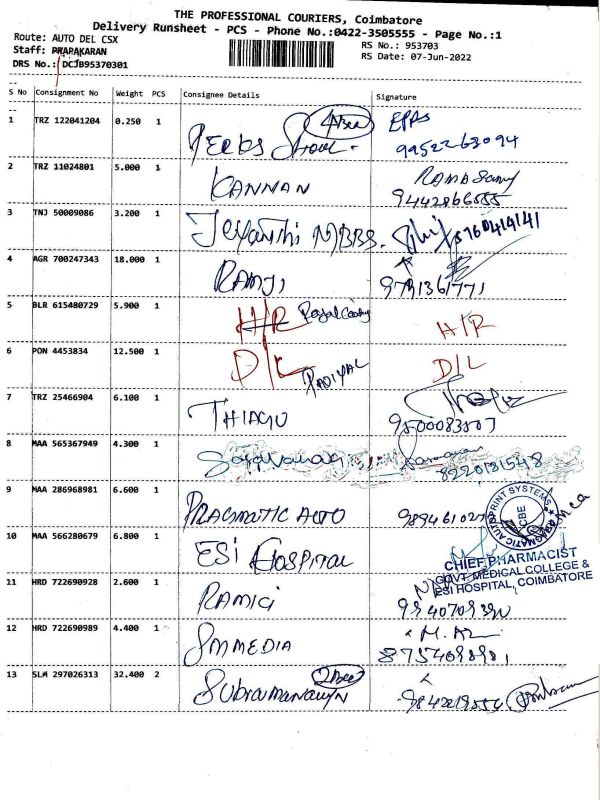 THE PROFESSIONAL COURIERS, Coimbatore
Delivery Runsheet - PCS - Phone No.:0422-3505555 - Page No.:1
Route: AUTO DEL CSX
RS No.: 953703
Staff: PRAPAKARAN
RS Date: 07-Jun-2022
DRS No.: DCJB95370301
S No Consignment No Weight PCS Consignee Details Signature
1 TRZ 122041204 0.250 1
9952263094
2 TRZ 11024801 5.000 1 KANNAN RAMASAMY
9442866555
3 TNJ 50009086 3.200 1 Jeyanthi MBBS. 8760414141
4 AGR 700247343 18.000 1 RAMJI
9791361771
5 BLR 615480729 5.900 1 H/R H/R
6 PON 4453834 12.500 1 D/L PADIYAL D/L
7 TRZ 25466904 6.100 1 THIAGU
9500083507
8 MAA 565367949 4.300 1 Saravanan
8220131548
9 MAA 286968981 6.600 1 PRAGMATIC AUTO
PRAGMATIC AUTOPRINT SYSTEMS
CBE
10 MAA 566280679 6.800 1 ESI HOSPITAL
CHIEF PHARMACIST
GOVT. MEDICAL COLLEGE &
ESI HOSPITAL, COIMBATORE
11 HRD 722690928 2.600 1
12 HRD 722690989 4.400 1 SMMEDIA
13 SLM 297026313 32.400 2